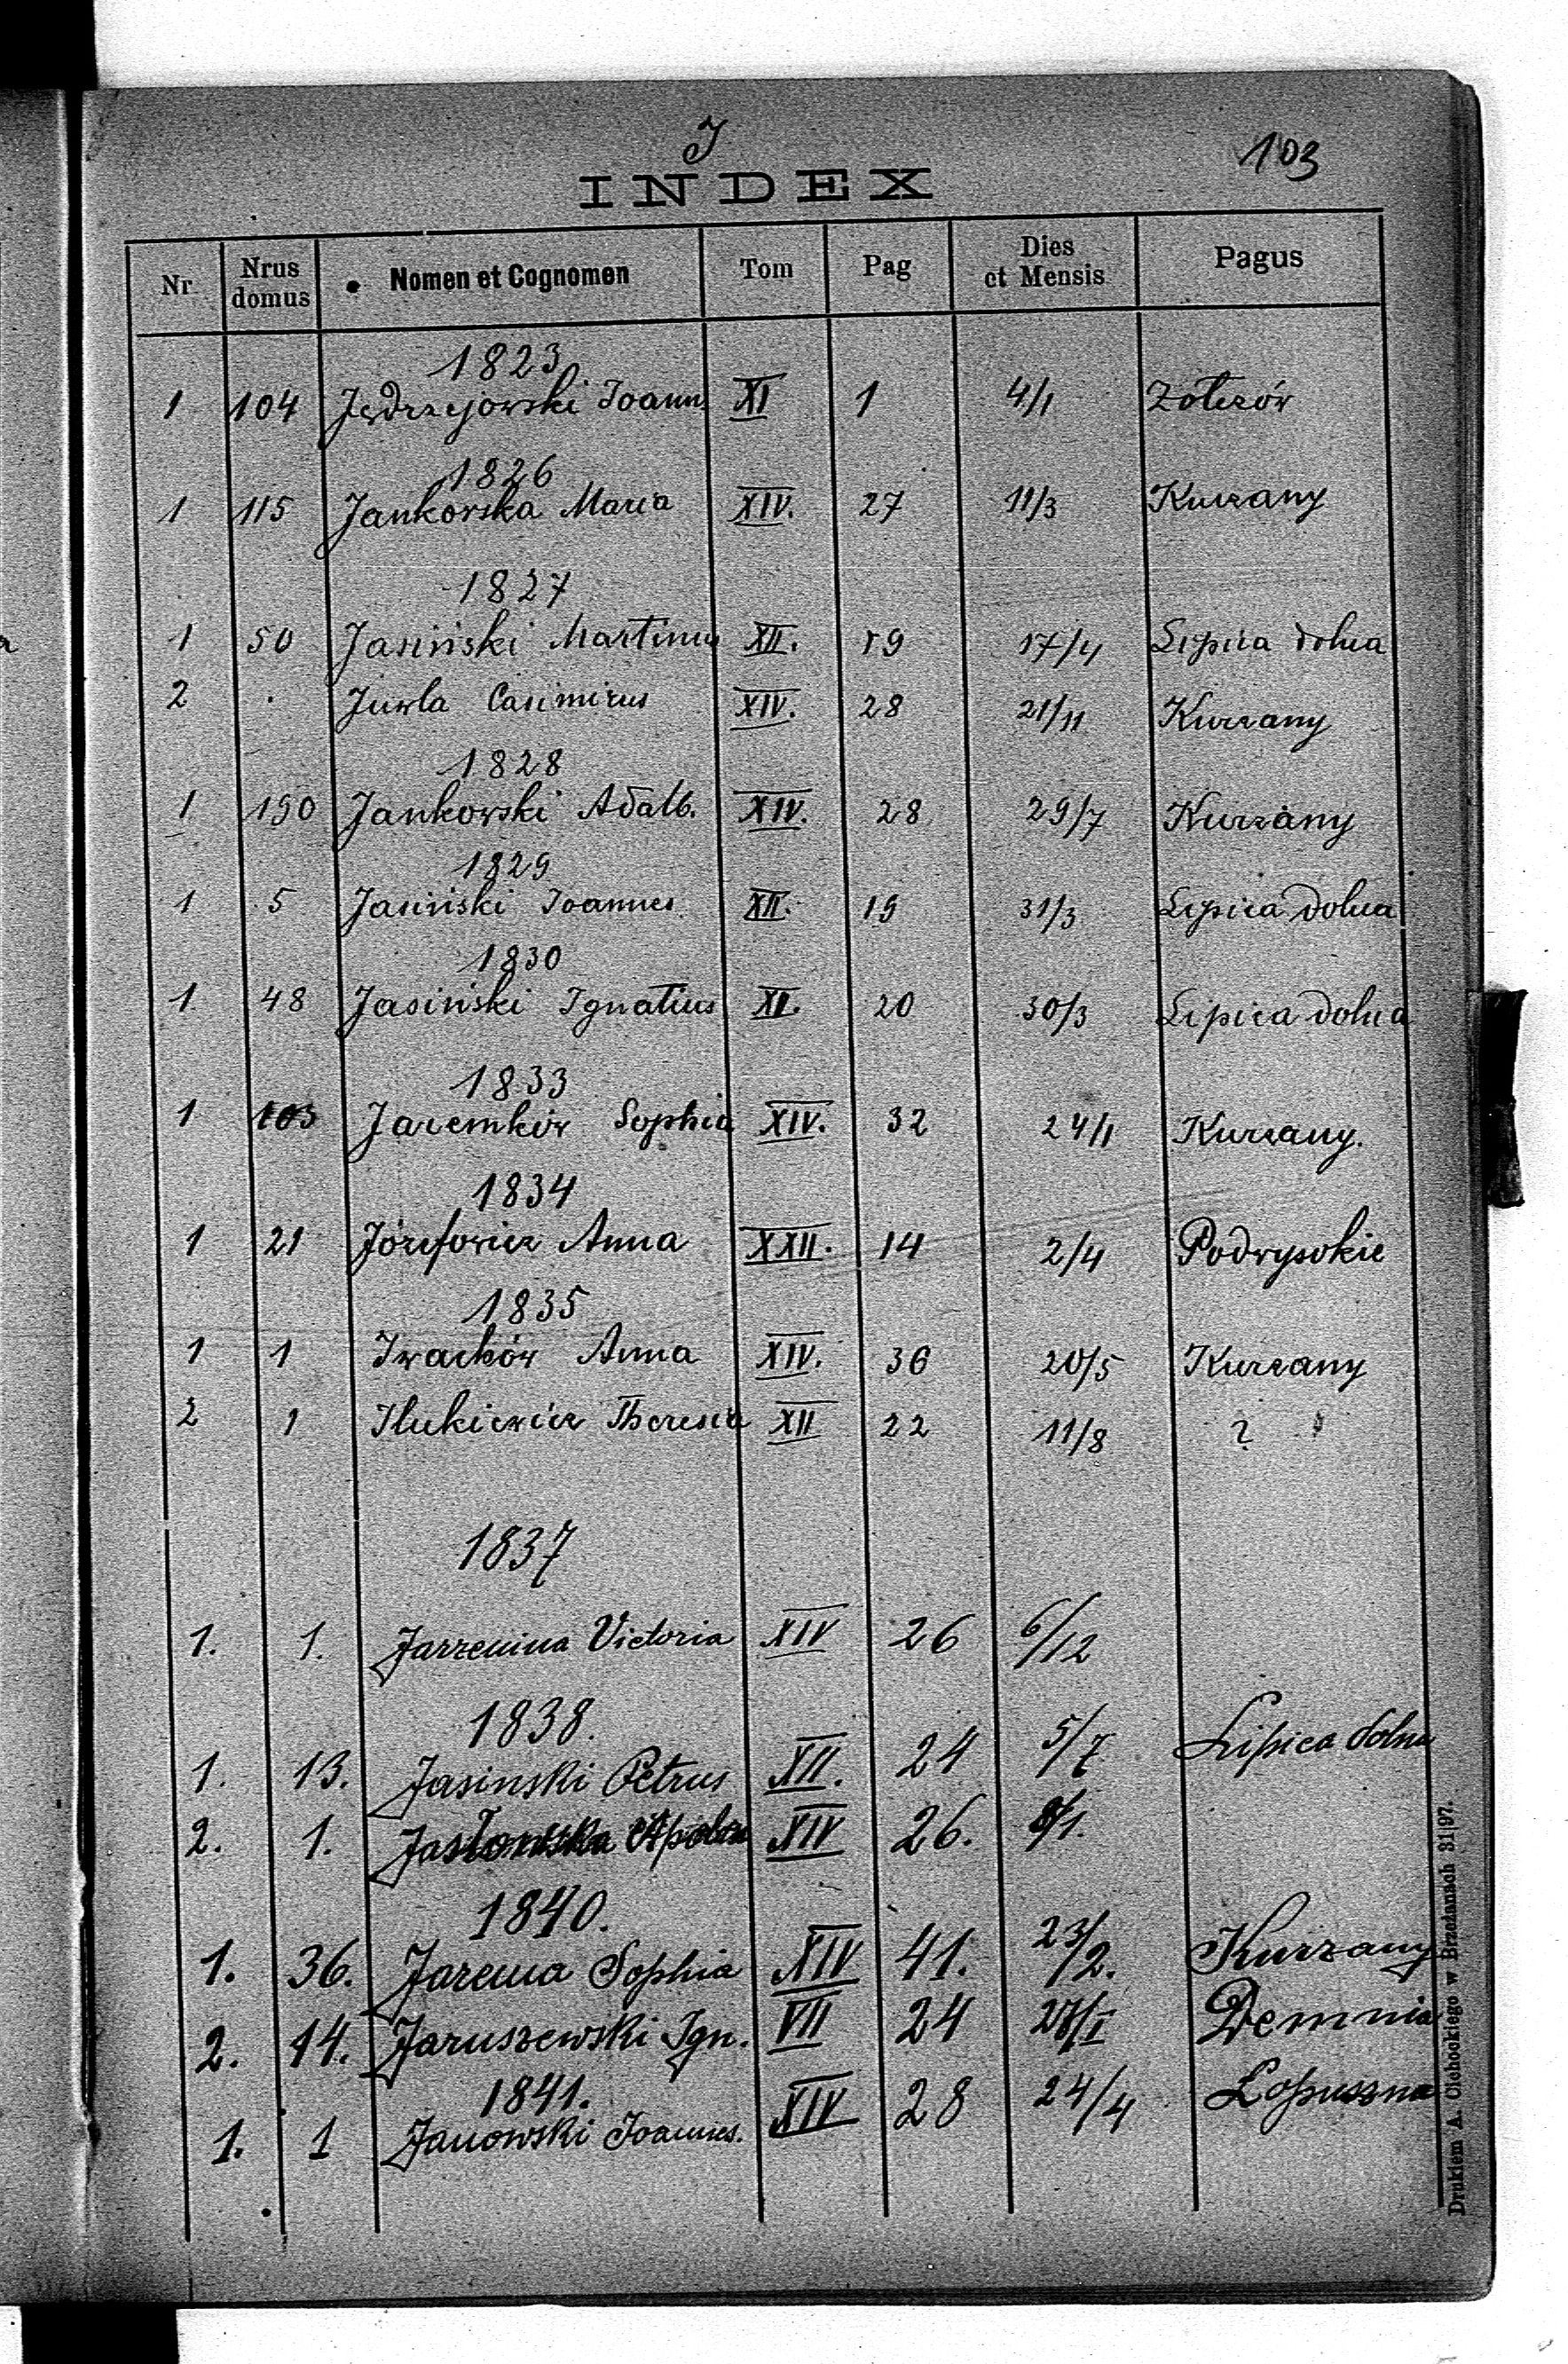 J
103
INDEX
Nr Nrus domus Nomen et Cognomen Tom Pag Dies et Mensis Pagus
1823
1 104 Jędrzejowski Joann. XI 1 4/1 Zołczów
1826
1 115 Jankowska Maria XIV. 27 11/3 Kurzany
1827
1 50 Jasiński Martinus XII. 19 17/4 Lipica dolna
2 . Juwla Casimirus XIV. 28 21/11 Kurzany
1828
1 190 Jankowski Adalb. XIV. 28 29/7 Kurzany
1829
1 5 Jasiński Joannes XII. 19 31/3 Lipica dolna
1830
1 48 Jasiński Ignatius XI. 20 30/3 Lipica dolna
1833
1 103 Jaremków Sophia XIV. 32 24/1 Kurzany.
1834
1 21 Józefowicz Anna XXII. 14 2/4 Podwysokie
1835
1 1 Iwachów Anna XIV. 36 20/5 Kurzany
2 1 Ilukiewicz Theresia XII 22 11/8 ?
1837
1. 1. Jarzenina Victoria XIV 26 6/12
1838.
1. 13. Jasinski Petrus XII. 24 5/7 Lipica dolna
2. 1. Jasłowska XIV 26.
1840.
1. 36. Jarema Sophia XIV 41. 23/2. Kurzany
2. 14. Jaruszewski Ign. VII 24 Demnia
1841.
1. 1 Janowski Joannes. XIV 28 24/4 Łopuszna
Drukiem A. Olchockiego w Brzeżanach 31|97.